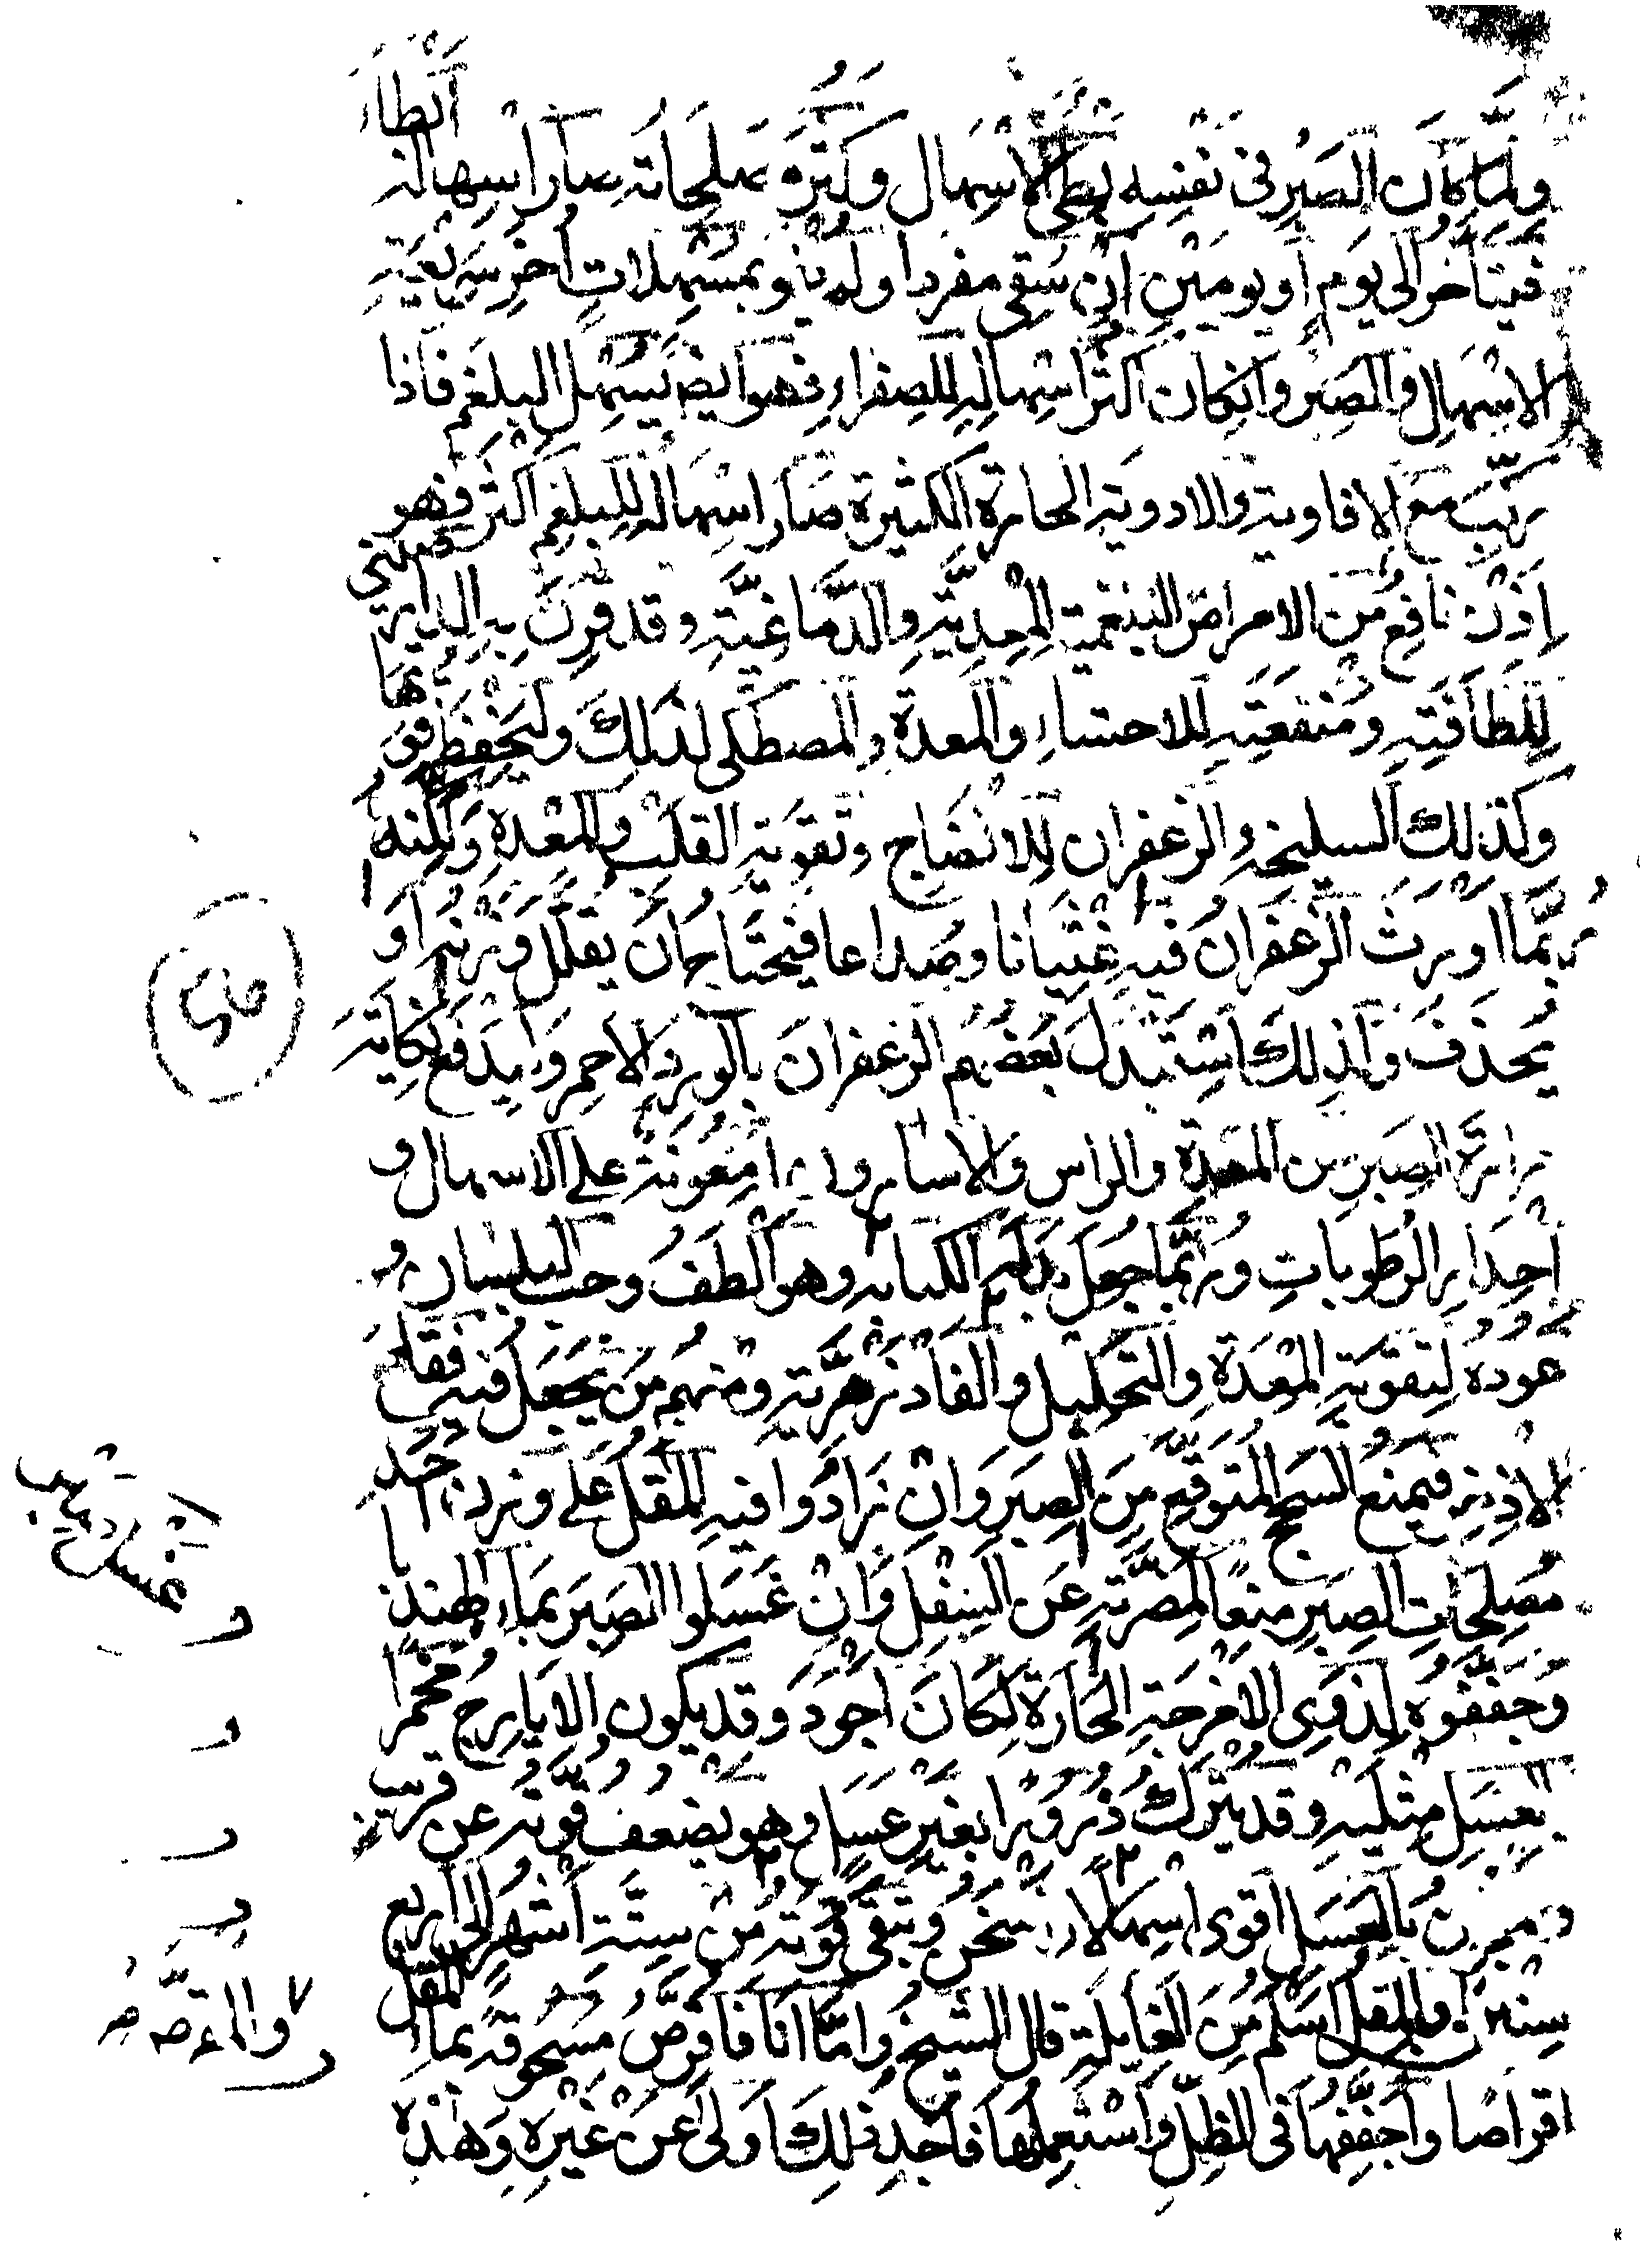 ولما كان الصبر فى نفسه بطئ الاسهال وكثرة مصلحاته صار اسهاله ابطأ
فيتأخر الى يوم او يومين ان سقى مفردا ولم يقو بمسهلات أخر سريعة
الاسهال والصبر وانكان اكثر اسهاله للصفراء فهو ايضا يسهل البلغم فاذا
ركب مع الافاويه والادوية الحارة الكثيرة صار اسهاله للبلغم اكثر فهو
إذن نافع من الامراض البلغمية المعدية والدماغية وقد قرن به الدارصينى
للطافته ومنفعته للاحشاء والمعدة والمصطكى لذلك ولتحفظ قوتها
وكذلك السليخة والزعفران للانضاج وتقوية القلب والمعدة ولكنه
ربما اورث الزعفران فيه غثيانا وصداعا فيحتاج ان يقلل وزنه او
يحذف ولذلك استبدل بعضهم الزعفران بالورد الاحمر و ليدفع نكاية
حرارة الصبر من المعدة والراس و معونة على الاسهال و
احدار الرطوبات وربما جعل بدله الكبابه وهو الطف وحب البلسان و
عوده لتقوية المعدة والتحليل والفادزهرية ومنهم من يجعل فيه فقاح
الاذخر فيمنع السحج المتوقع من الصبر وان زادوا فيه المقل على وزن احد
مصلحات الصبر منعا لمضرته عن السفل وان غسلوا الصبر بماء الهندبا
وجففوه لذوى الامزجة الحارة لكان اجود وقد يكون الايارج مخمرا
بعسل مثليه وقد يترك ذرورا بغير عسل وهو يضعف قوته عن قريب
ومعجون بالعسل اقوى اسهالا واسخن وتبقى قوته من ستة اشهر الى اربع
سنين والمقل اسلم من الغايلة قال الشيخ واما انا فاقرص مسحوقه بماء المقل
اقراصا واجففها فى الظل واستعملها فاجد ذلك اولى عن غيره وهذه